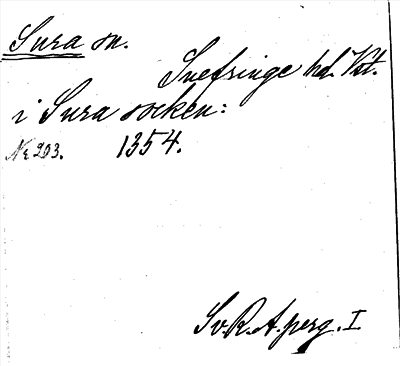 Sura sn.
Snefringe hd. Vstt.
i Sura socken:
Nr 203. 1354.
Sv. R. A. perg. I